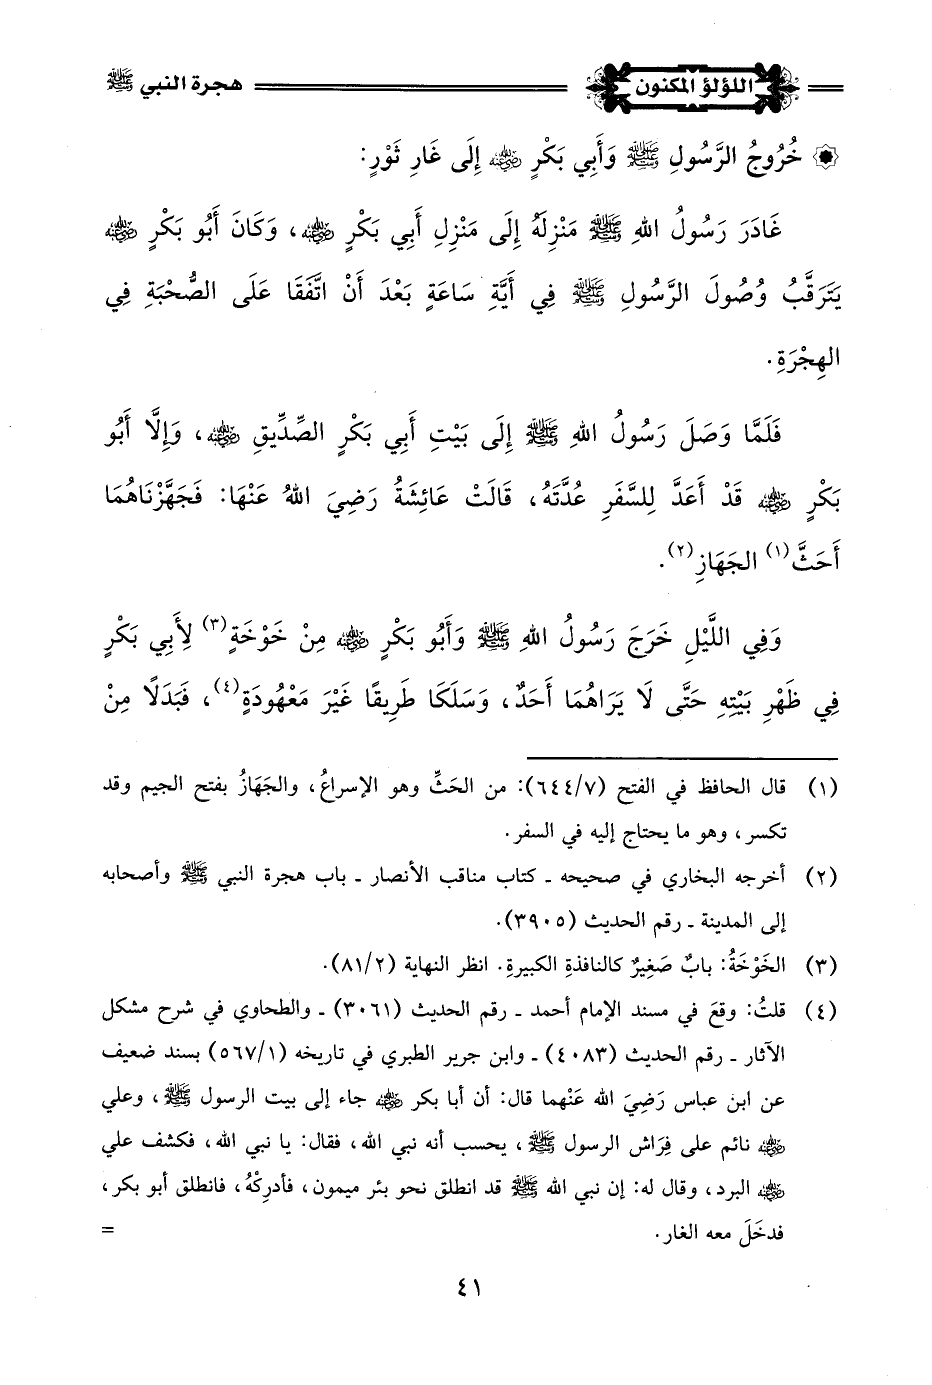 اللؤلؤ المكنون هجرة النبي ﷺ
خُرُوجُ الرَّسُولِ ﷺ وَأَبِي بَكْرٍ رضي الله عنه إِلَى غَارِ ثَوْرٍ:
غَادَرَ رَسُولُ اللهِ ﷺ مَنْزِلَهُ إِلَى مَنْزِلِ أَبِي بَكْرٍ رضي الله عنه، وَكَانَ أَبُو بَكْرٍ رضي الله عنه
يَتَرَقَّبُ وُصُولَ الرَّسُولِ ﷺ فِي أَيَّةِ سَاعَةٍ بَعْدَ أَنْ اتَّفَقَا عَلَى الصُّحْبَةِ فِي
الهِجْرَةِ.
فَلَمَّا وَصَلَ رَسُولُ اللهِ ﷺ إِلَى بَيْتِ أَبِي بَكْرٍ الصِّدِّيقِ رضي الله عنه، وَإِلَّا أَبُو
بَكْرٍ رضي الله عنه قَدْ أَعَدَّ لِلسَّفَرِ عُدَّتَهُ، قَالَتْ عَائِشَةُ رَضِيَ اللهُ عَنْهَا: فَجَهَّزْنَاهُمَا
أَحَثَّ(١) الجَهَازِ(٢).
وَفِي اللَّيْلِ خَرَجَ رَسُولُ اللهِ ﷺ وَأَبُو بَكْرٍ رضي الله عنه مِنْ خَوْخَةٍ(٣) لِأَبِي بَكْرٍ
فِي ظَهْرِ بَيْتِهِ حَتَّى لَا يَرَاهُمَا أَحَدٌ، وَسَلَكَا طَرِيقًا غَيْرَ مَعْهُودَةٍ(٤)، فَبَدَلًا مِنْ
(١) قال الحافظ في الفتح (٦٤٤/٧): من الحَثِّ وهو الإسراعُ، والجَهَازُ بفتح الجيم وقد
تكسر، وهو ما يحتاج إليه في السفر.
(٢) أخرجه البخاري في صحيحه ـ كتاب مناقب الأنصار ـ باب هجرة النبي ﷺ وأصحابه
إلى المدينة ـ رقم الحديث (٣٩٠٥).
(٣) الخَوْخَةُ: بابٌ صَغِيرٌ كالنافذةِ الكبيرةِ. انظر النهاية (٨١/٢).
(٤) قلتُ: وقعَ في مسند الإمام أحمد ـ رقم الحديث (٣٠٦١) ـ والطحاوي في شرح مشكل
الآثار ـ رقم الحديث (٤٠٨٣) ـ وابن جرير الطبري في تاريخه (٥٦٧/١) بسند ضعيف
عن ابن عباس رَضِيَ الله عَنْهما قال: أن أبا بكر رضي الله عنه جاء إلى بيت الرسول ﷺ، وعلي
رضي الله عنه نائم على فِرَاش الرسول ﷺ، يحسب أنه نبي الله، فقال: يا نبي الله، فكشف علي
رضي الله عنه البرد، وقال له: إن نبي الله ﷺ قد انطلق نحو بئر ميمون، فأدرِكْهُ، فانطلق أبو بكر،
فدخَلَ معه الغار. =
٤١